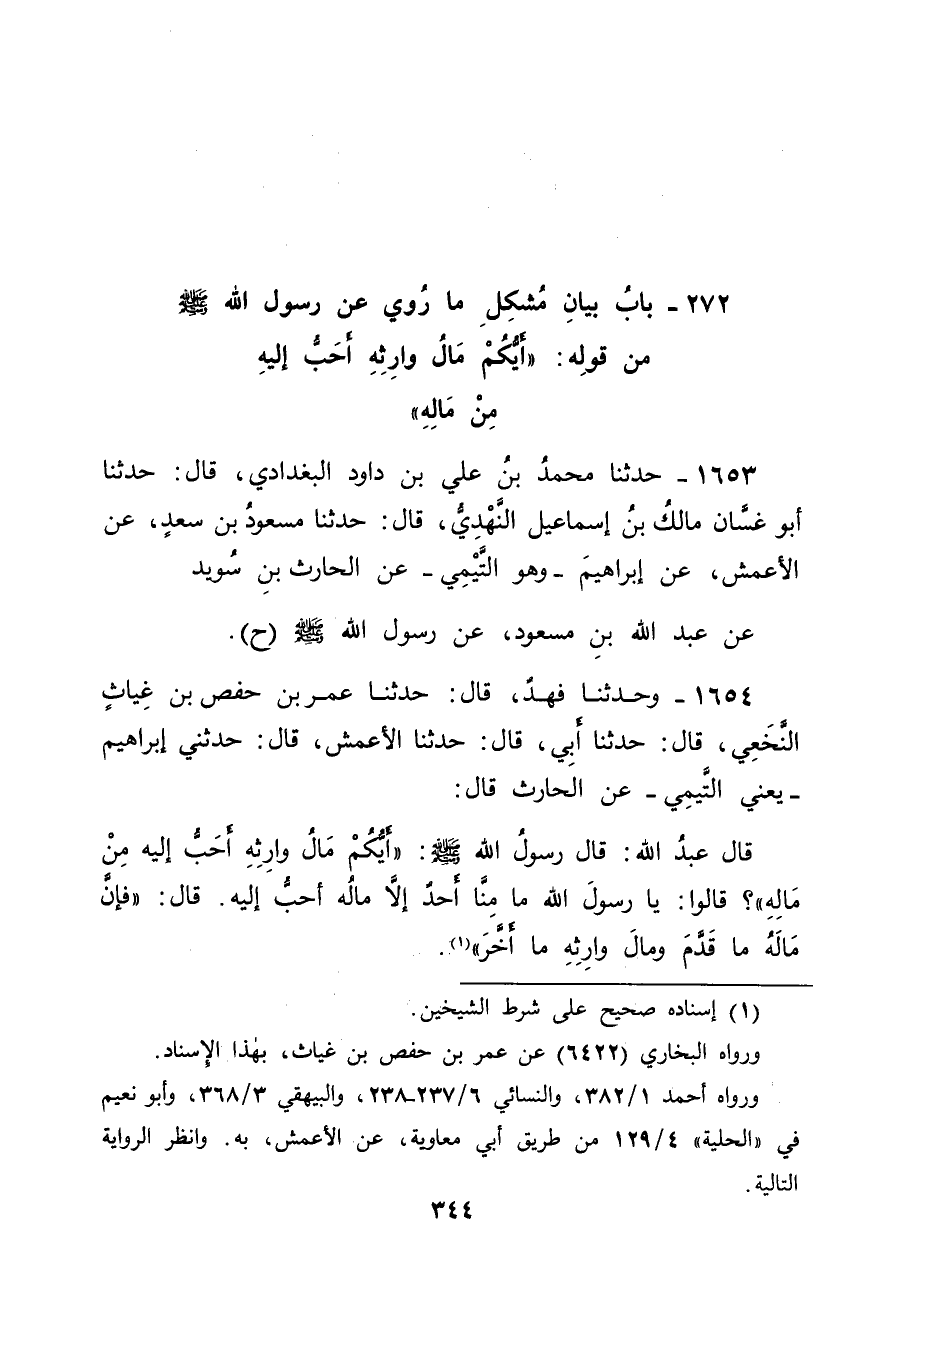 ٢٧٢ ـ بابُ بيانِ مُشكِلِ ما رُوي عن رسول الله ﷺ
من قولِه: «أَيُّكُمْ مَالُ وارِثِهِ أَحَبُّ إليهِ
مِنْ مَالِهِ»
١٦٥٣ ـ حدثنا محمدُ بنُ علي بن داود البغدادي، قال: حدثنا
أبو غسَّان مالكُ بنُ إسماعيل النَّهْدِيُّ، قال: حدثنا مسعودُ بن سعدٍ، عن
الأعمش، عن إبراهيمَ ـ وهو التَّيْمِي ـ عن الحارث بنِ سُويد
عن عبد الله بنِ مسعود، عن رسول الله ﷺ (ح).
١٦٥٤ ـ وحدثنا فهدٌ، قال: حدثنا عمر بن حفص بن غِياثٍ
النَّخَعِي، قال: حدثنا أَبِي، قال: حدثنا الأعمش، قال: حدثني إبراهيم
ـ يعني التَّيمِي ـ عن الحارث قال:
قال عبدُ الله: قال رسولُ الله ﷺ: «أَيُّكُمْ مَالُ وارِثِهِ أَحَبُّ إليه مِنْ
مَالِهِ»؟ قالوا: يا رسولَ الله ما مِنَّا أَحدٌ إلَّا مالُه أحبُّ إليه. قال: «فإنَّ
مَالَهُ ما قَدَّمَ ومالَ وارِثِهِ ما أَخَّرَ»(١).
(١) إسناده صحيح على شرط الشيخين.
ورواه البخاري (٦٤٢٢) عن عمر بن حفص بن غياث، بهٰذا الإِسناد.
ورواه أحمد ٣٨٢/١، والنسائي ٢٣٧/٦ـ٢٣٨، والبيهقي ٣٦٨/٣، وأبو نعيم
في «الحلية» ١٢٩/٤ من طريق أبي معاوية، عن الأعمش، به. وانظر الرواية
التالية.
٣٤٤